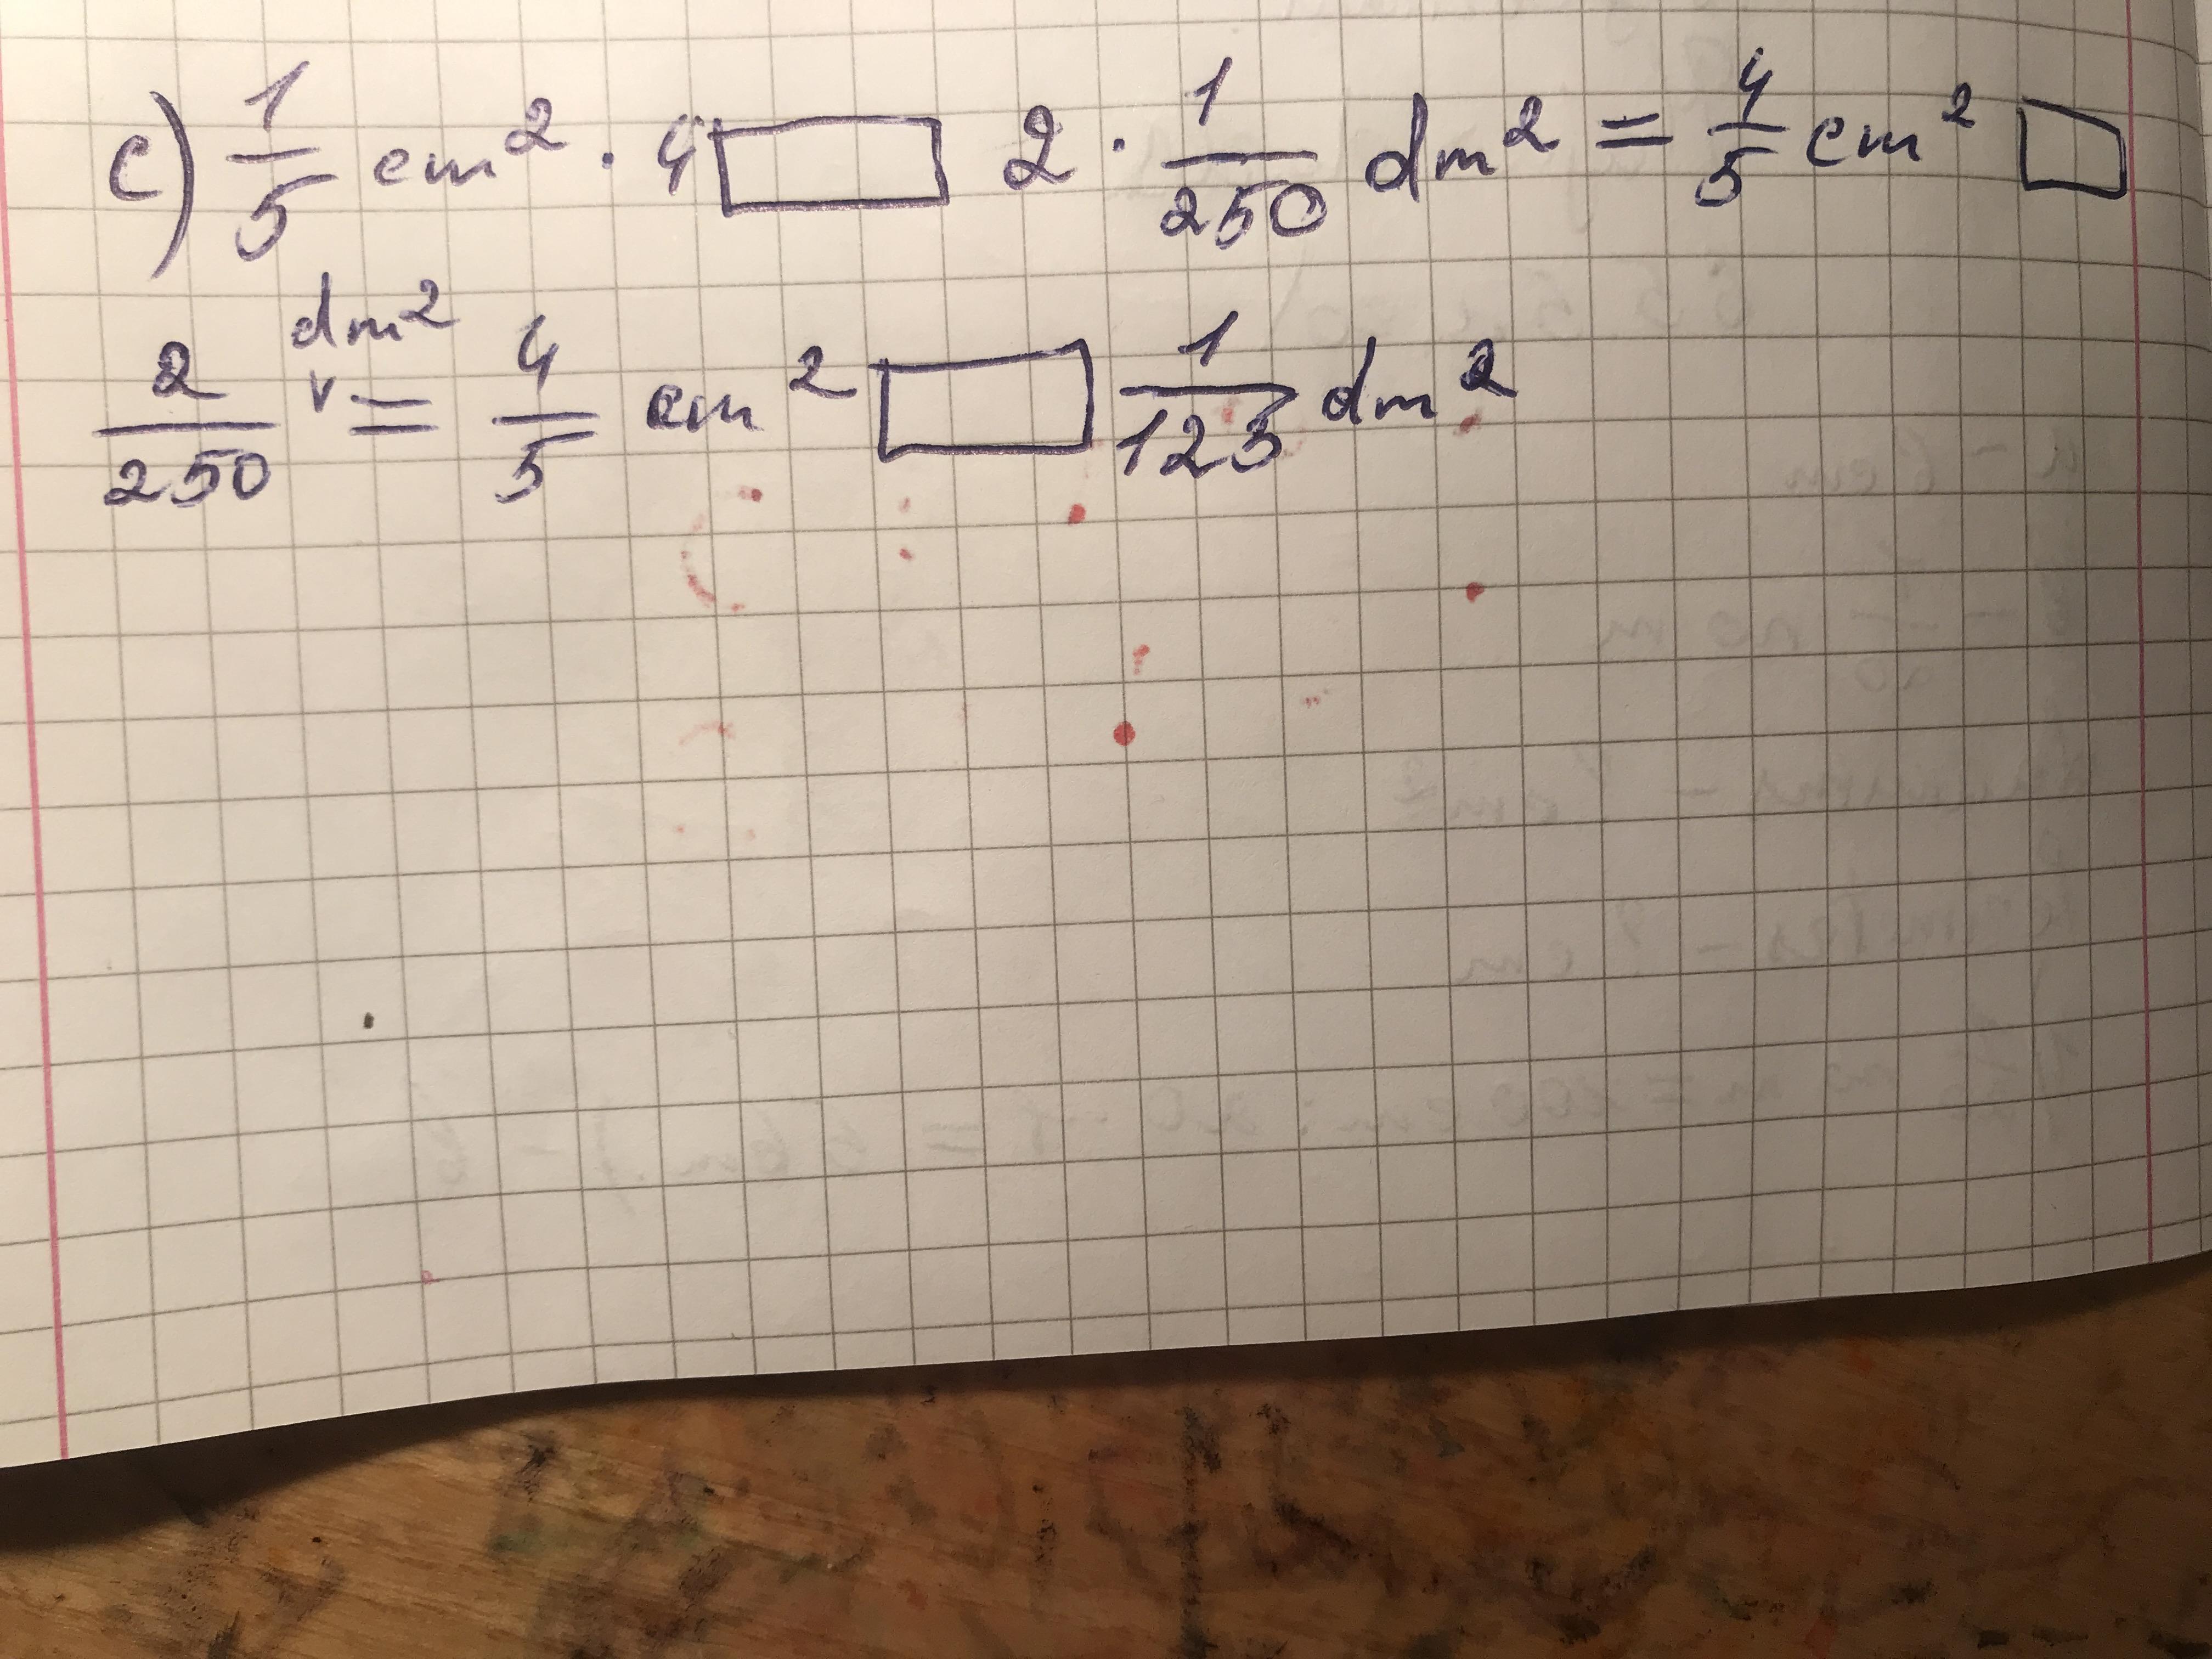 c) 1/5 cm² · 4 □ 2 · 1/250 dm² = 4/5 cm² □
2/250 dm² = 4/5 cm² □ 1/125 dm²